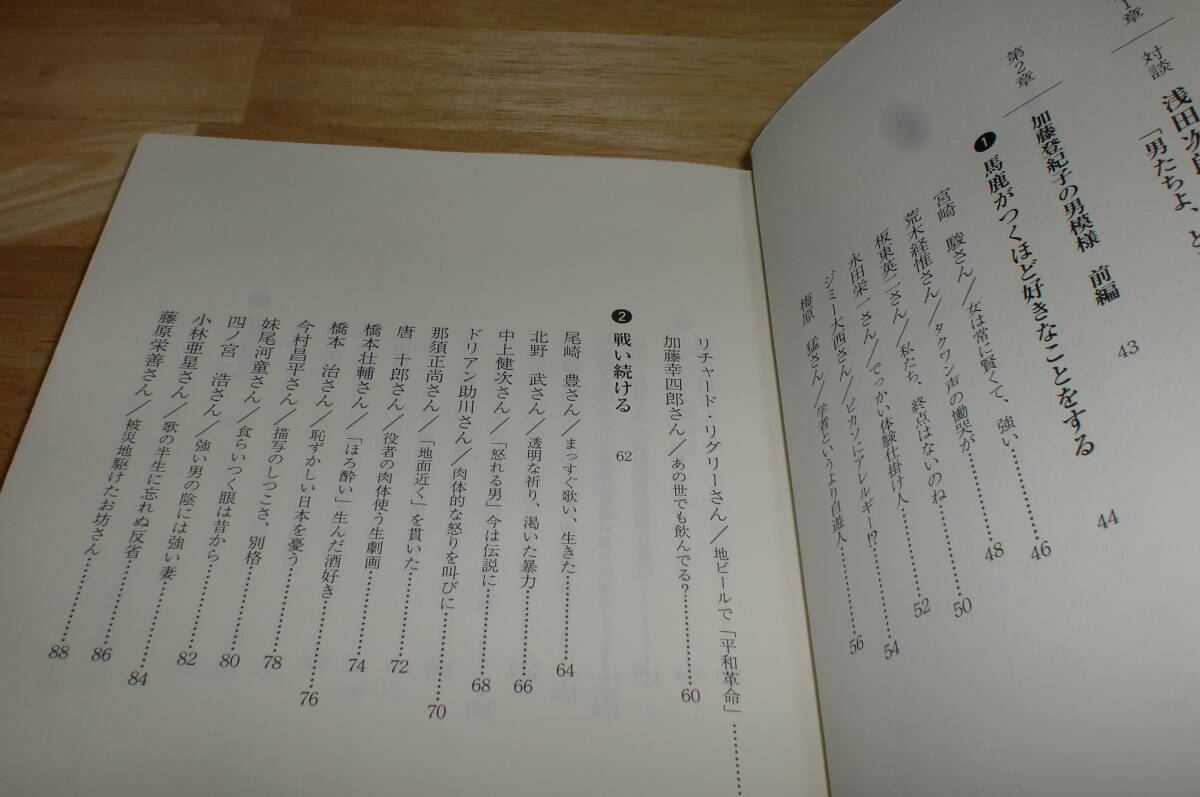 1章
対談 浅田次郎
「男たちよ、
43
第2章
加藤登紀子の男模様 前編
44
❶ 馬鹿がつくほど好きなことをする
46
宮崎 駿さん／女は常に賢くて、強い 48
荒木経惟さん／タクワン声の慟哭が 50
板東英二さん／私たち、終点はないのね 52
永田栄一さん／でっかい体験仕掛け人 54
ジミー大西さん／ピカソにアレルギー!? 56
梅原 猛さん／学者というより自遊人
リチャード・リグリーさん／地ビールで「平和革命」
加藤幸四郎さん／あの世でも飲んでる? 60
❷ 戦い続ける 62
尾崎 豊さん／まっすぐ歌い、生きた 64
北野 武さん／透明な祈り、渇いた暴力 66
中上健次さん／「怒れる男」今は伝説に 68
ドリアン助川さん／肉体的な怒りを叫びに 70
那須正尚さん／「地面近く」を貫いた 72
唐 十郎さん／役者の肉体使う生劇画 74
橋本荘輔さん／「ほろ酔い」生んだ酒好き 76
橋本 治さん／恥ずかしい日本を憂う 78
今村昌平さん／描写のしつこさ、別格 80
妹尾河童さん／食らいつく眼は昔から 82
四ノ宮 浩さん／強い男の陰には強い妻 84
小林亜星さん／歌の半生に忘れぬ反省 86
藤原栄善さん／被災地駆けたお坊さん 88